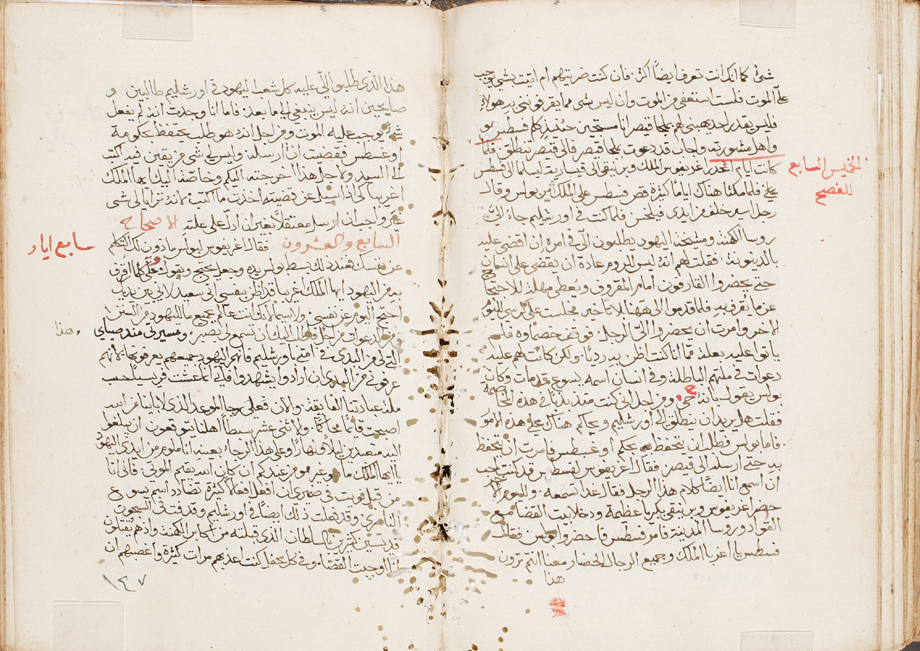 شئ كما انك انت تعرف ايضا اكثر فان كنت ضريتهم ام اتيت بشئ وجب
على الموت فلست استعفى من الموت وان ليس شئ مما يقرفونني به هولاء
فليس يقدر احد يهبني لهم بملجا قيصر انا مستجير حينئذ كلم فسطس
واهل مشورته واجاب قد دعوت بملجا قيصر فالى قيصر تنطلق فلما
كانت ايام انحدر اغريفوس الملك وبرنيقى الى قيسارية ليسلما الى فسطس
فلما مكثا هناك اياما كثيرة قص فسطس على الملك امر بولس وقال
رجل اسير خلف من ايدي فيلكس فلما كنت في اورشليم جاء الي
روسا الكهنة ومشيخة اليهود يطلبون الي في امره ان اقضي عليه
بالدينونة فقلت لهم انه ليس للروم عادة ان يقضى على انسان
حتى يحضروا القارفون امام المقروف ويعطى مهلة للاحتجاج
عن ما يقرف به فلما قدموا الى ههنا بلا تاخير جلست على كرسي
الاخر وامرت ان يحضروا الي الرجل فوقف خصماوه فلم
ياتوا عليه بعلة مما انا كنت اظن به رديا ولكن كانت لهم عليه
دعوات في ملتهم الباطلة وفي انسان اسمه يسوع قد مات وكان
بولس يقول بانه حي ومن اجل اني كنت متحيرا في هذه
فقلت هل يريد ان ينطلق الى اورشليم ويحكم هناك على هذه الامور
فاما بولس فطلب ان يتحفظ به بحكم اوغسطس فامرت ان يتحفظ
به حتى ارسله الى قيصر فقال اغريفوس لفسطس قد كنت احب
ان اسمع انا ايضا كلام هذا الرجل فقال غدا تسمعه واليوم الاخر
حضر اغريفوس وبرنيقى بكبريا عظيمة ودخلا بيت القضا مع
القواد وروسا المدينة فامر فسطس فاحضروا بولس فقال
فسطس يا اغريبا الملك وجميع الرجال الحضار معنا انتم ترون
هذا
الخميس السابع
للفصح
هذا الذي طلبوا الي عليه كل شعب اليهود في اورشليم طالبين و
صايحين انه ليس ينبغي له الحياة بعد فاما انا وجدت انه لم يفعل
شئ يوجب عليه الموت ومن اجل انه هو طلب يتحفظ لحكومة
اوغسطس فقضيت ان ارسله وليس لي شئ فيه اكتب
الى السيد ولاجل هذا اخرجته اليكم وخاصة اليك ايها الملك
اغريبا لكي اذا سيل عن قضيته اجد ما اكتب لانه ترايا لي شئ
غير واجب ان ارسل معتقلا بغير ان ادل على علته الاصحاح
السابع والعشرون فقال اغريفوس لبولس ماذون لك التكلم
عن نفسك فعند ذلك بسط بولس يده وجعل يحتج ويقول على كلما اقرف
به من اليهود ايها الملك اغريبا قد اظن بنفسي اني سعيد لاني بين يديك
احتج اليوم عن نفسي ولا سيما انك انت عالم بجميع ما لليهود من السنن
اطلب اليك ان تسمع لي بصبر ومسيرتي منذ صباي
التي من المبدى في امتي باورشليم فانهم اليهود جميعهم يعرفونها لانهم
عرفوني من المبدى ان ارادوا يشهدوا فاني انا عشت فريسيا كحسب
ملة عبادتنا الفايقة والان فعلى رجا الموعد الذي لابائنا من الله
اصبحت قائما محاكما والاثني عشر سبطا اهلنا يتوقعون ان يبلغوا
اليه متعبدين ليلا ونهارا وعلى هذا الرجاء بعينه انا ملوم من ايدي اليهود
يا ايها الملك ما غير مومن عندكم ان كان الله يقيم الموتى فاني انا
من قبل نويت في ضميري ان افعل افعالا كثيرة تضاد اسم يسوع
الناصري وقد فعلت ذلك ايضا في اورشليم وقد قدفت في السجون
قديسين كثيرين بالسلطان الذي قبلته من اكابر الكهنة واذ هم يقتلون
انا اوجبت القضاء وفي كل محفل كنت اعذبهم مرات كثيرة واغصبهم ان
سابع ايار
١٩٧